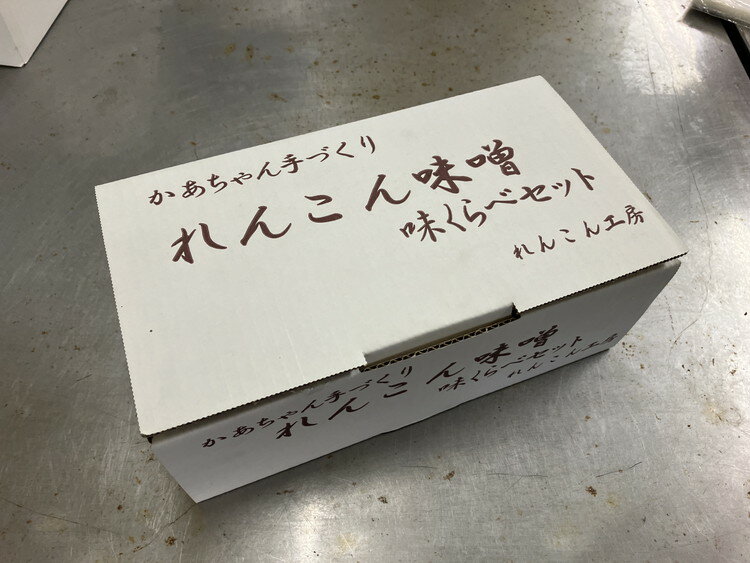 かあちゃん手づくり
れんこん味噌
味くらべセット
れんこん工房
かあちゃん手づくり
れんこん味噌
味くらべセット
れんこん工房